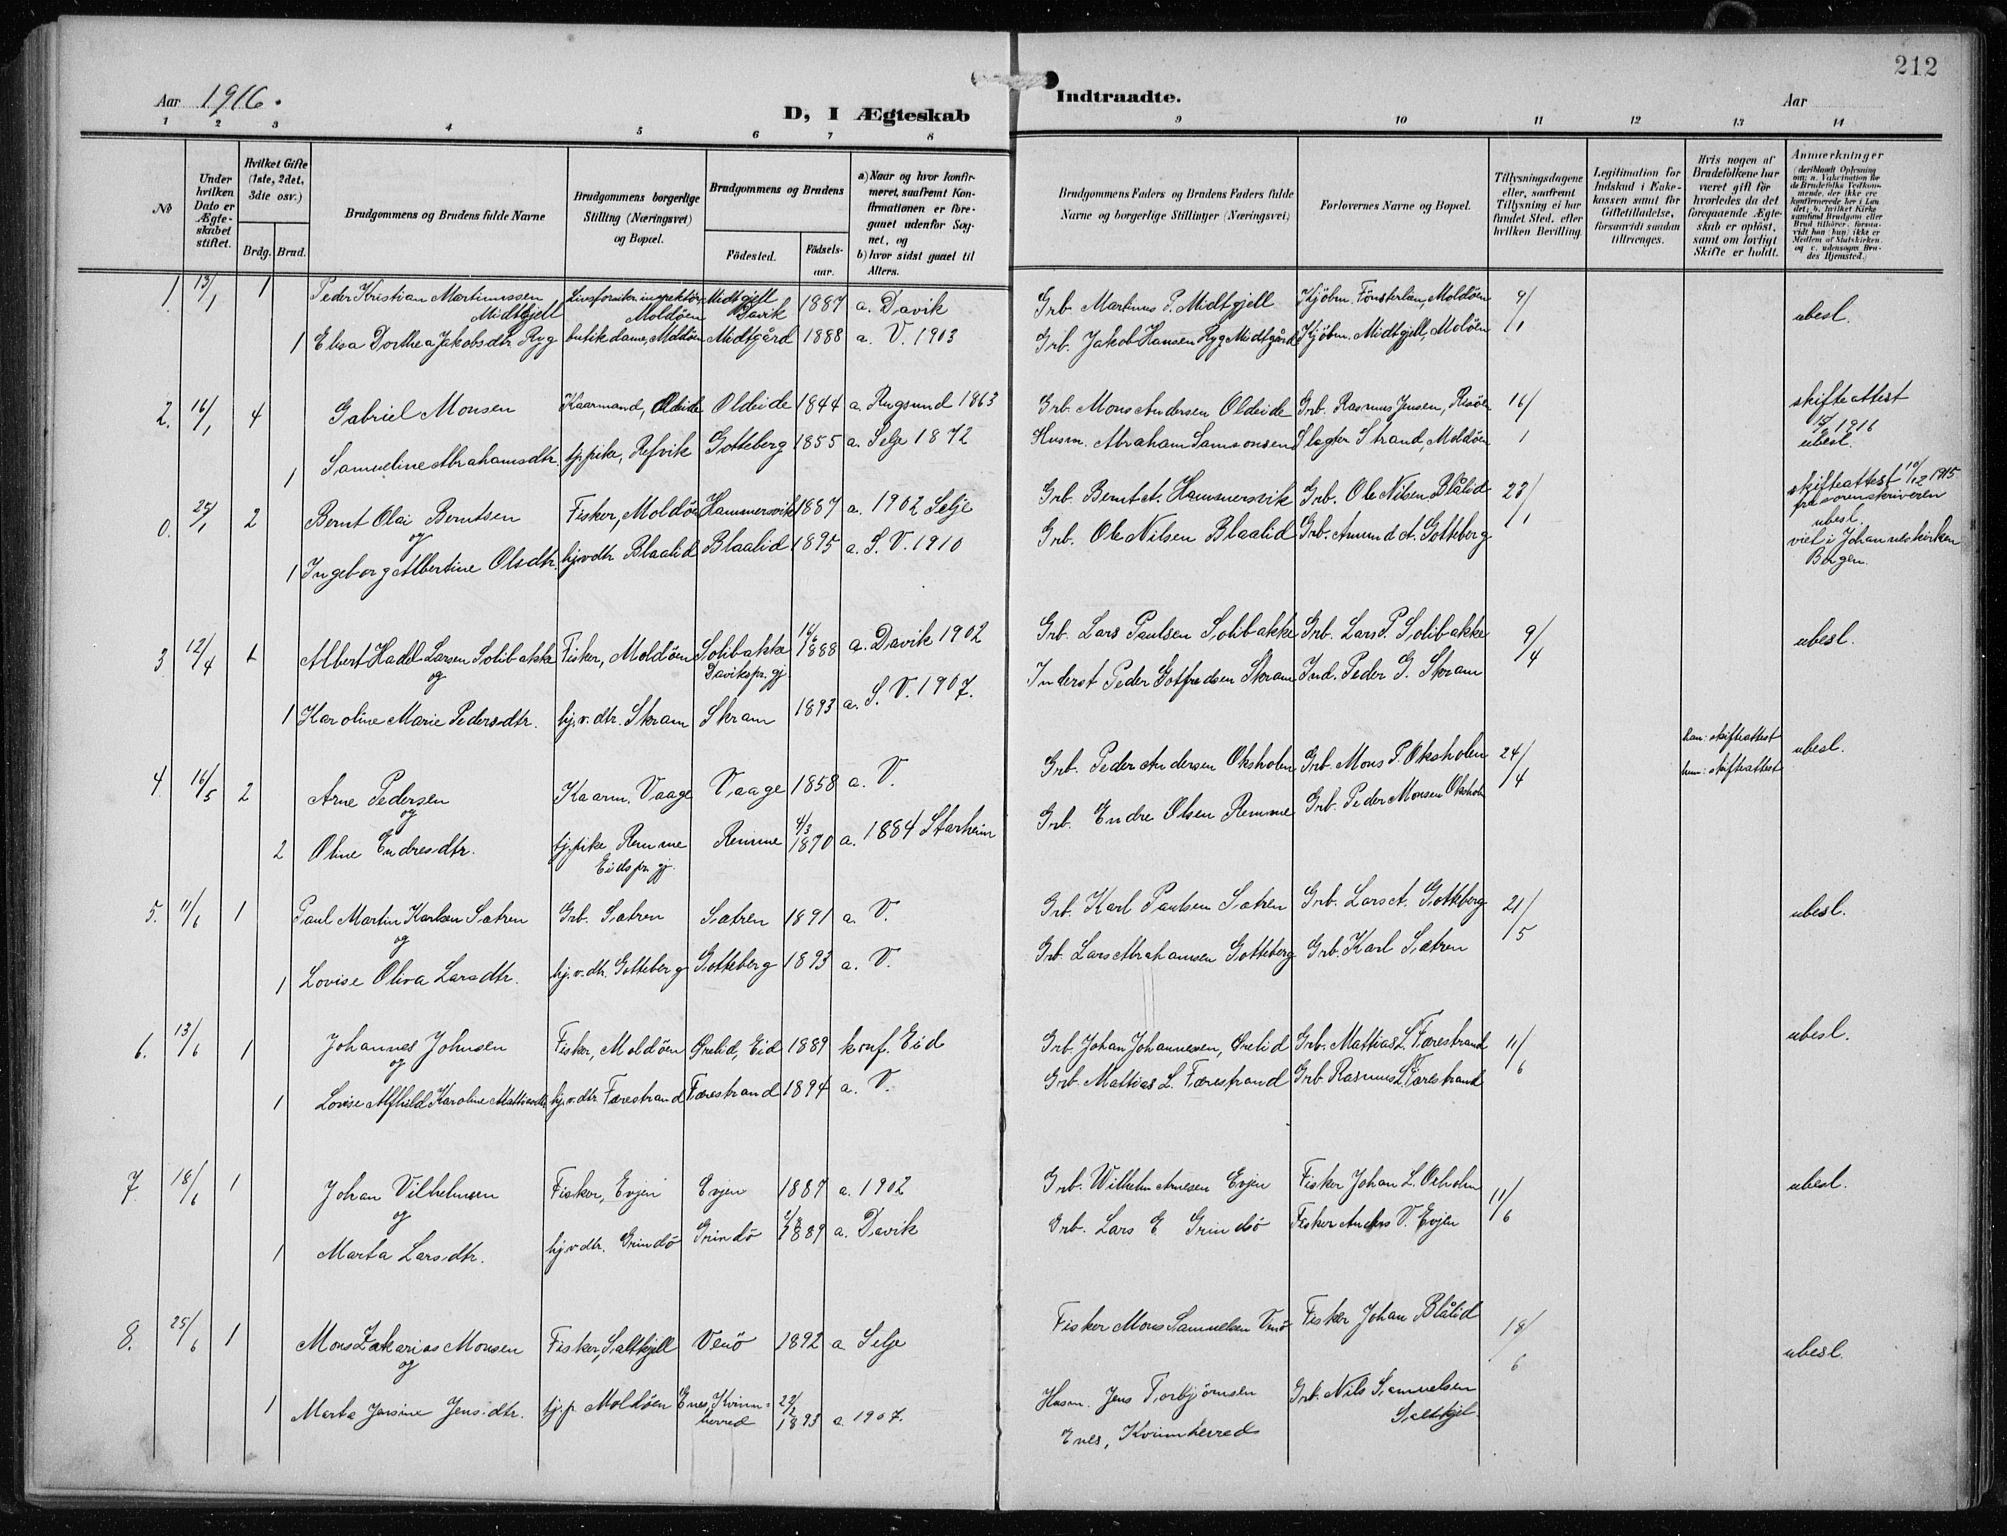 212
Aar 1916.
D, I Ægteskab
Indtraadte.
Aar
1 2 3 4 5 6 7 8 9 10 11 12 13 14
№
Under hvilken Dato er Ægteskabet stiftet.
Hvilket Gifte (1ste, 2det, 3die osv.)
Brdg. Brud.
Brudgommens og Brudens fulde Navne
Brudgommens borgerlige Stilling (Næringsvei) og Bopæl.
Brudgommens og Brudens
Födested.
Födsels-aar.
a) Naar og hvor konfirmeret, saafremt Konfirmationen er foregaaet udenfor Sognet, og
b) hvor sidst gaaet til Alters.
Brudgommens Faders og Brudens Faders fulde Navne og borgerlige Stillinger (Næringsvei)
Forlovernes Navne og Bopæl.
Tillysningsdagene eller, saafremt Tillysning ei har fundet Sted, efter hvilken Bevilling.
Legitimation for Indskud i Enkekassen samt for Giftetilladelse, forsaavidt saadan tiltrænges.
Hvis nogen af Brudefolkene har været gift før hvorledes da det foregaaende Ægteskab er opløst, samt om lovligt Skifte er holdt.
Anmærkninger
1. 13/1 1 Peder Kristian Martinussen Midtgjell Livsforsikr. inspektör Moldöen Midtgjell Davik 1887 a. Davik Grb. Martinus P. Midtgjell Kjöbm. Fönsterlan, Moldöen 9/1 ubesl.
1 Elisa Dorthea Jakobsdtr. Ryg butikdame, Moldöen Midtgård 1888 a. V. 1903 Grb. Jakob Hansen Ryg Midtgård Kjöbm. Midtgjell, Moldöen
2. 16/1 4 Gabriel Monsen Kaarmand, Oldeide Oldeide 1844 a. Rugsund 1863 Grb. Mons Andersen Oldeide Grb. Rasmus Jensen, Risöen 16/1 skifteattest 1916 ubesl.
1 Samueline Abrahamsdtr. tj. pike, Refvik Gotteberg 1855 a. Selje 1872 Husm. Abraham Samsonsen Slagter Strand, Moldöen
0. 25/1 2 Bernt Olai Berntsen Fisker, Moldöen Hammersvik 1887 a. 1902 Selje Grb. Bernt A. Hammersvik Grb. Ole Nilsen Blålid 23/1 skifteattest 10/12 1915 fra sorenskriveren ubesl. viet i Johanneskirken Bergen.
og
1 Ingeborg Albertine Olsdtr. hjv dtr Blaalid Blaalid 1895 a. S. V. 1910 Grb. Ole Nilsen Blaalid Grb. Amund A. Gotteberg
3 12/4 1 Albert Hadel Larsen Solibakke Fisker, Moldöen Solibakke Davikspr.gj. 16/6 1888 a. Davik 1902 Grb. Lars Paulsen Solibakke Grb. Lars P. Solibakke 9/4 ubesl.
og
1 Karoline Marie Pedersdtr. hj. v. dtr. Skram Skram 1893 a. S. V. 1907. Inderst Peder Gotfredsen Skram Ind. Peder G. Skram
4. 16/5 2 Arne Pedersen Kaarm. Vaage Vaage 1858 a. V. Grb. Peder Andersen Oksholm Grb. Mons P. Oksholm 24/4 han: skifteattest ubesl.
og
hun: skifteattest
2 Oline Endresdtr. tj. pike Remme Eidspr.gj. Remme 4/3 1870 a. 1884 Starheim Grb. Endre Olsen Remme Grb. Peder Monsen Oksholm
5. 11/6 1 Paul Martin Karlsen Sætren Grb. Sætren Sætren 1891 a. V. Grb. Karl Paulsen Sætren Grb. Lars A. Gotteberg 21/5 ubesl.
og
1 Lovise Oliva Larsdtr. hj. v. dtr. Gotteberg Gotteberg 1893 a. V. Grb. Lars Abrahamsen Gotteberg Grb. Karl Sætren
6. 13/6 1 Johannes Johnsen Fisker, Moldöen Ørelid, Eid 1889 konf. Eid Grb. Johan Johannessen, Ørelid Grb. Mattias L. Færestrand 11/6 ubesl.
og
1 Lovise Alfhild Karoline Mattiasdtr. hj. v. dtr Færestrand Færestrand 1894 a. V. Grb. Mattias L. Færestrand Grb. Rasmus L. Færestrand
7. 18/6 1 Johan Vilhelmsen Fisker, Evjen Evjen 1887 a. 1902 Grb. Wilhelm Arnesen Evjen Fisker Johan L. Oxholm 11/6 ubesl.
og
1 Marta Larsdtr. hj. v. dtr. Grindö Grindö 1889 a. Davik Grb. Lars E Grindsö Fisker Anders V. Evjen
8. 25/6 1 Mons Zakarias Monsen Fisker, Saltkjell Venö 1892 a. Selje Fisker Mons Samuelsen Venö Fisker Johan Blålid 18/6 ubesl.
og
1 Marta Jensine Jensdtr. tj. p. Moldöen Enes, Kvinnherred 22/2 1893 a. 1907. Husm. Jens Torbjörnsen Enes, Kvinnherred Grb. Nils Samuelsen Saltkjel.